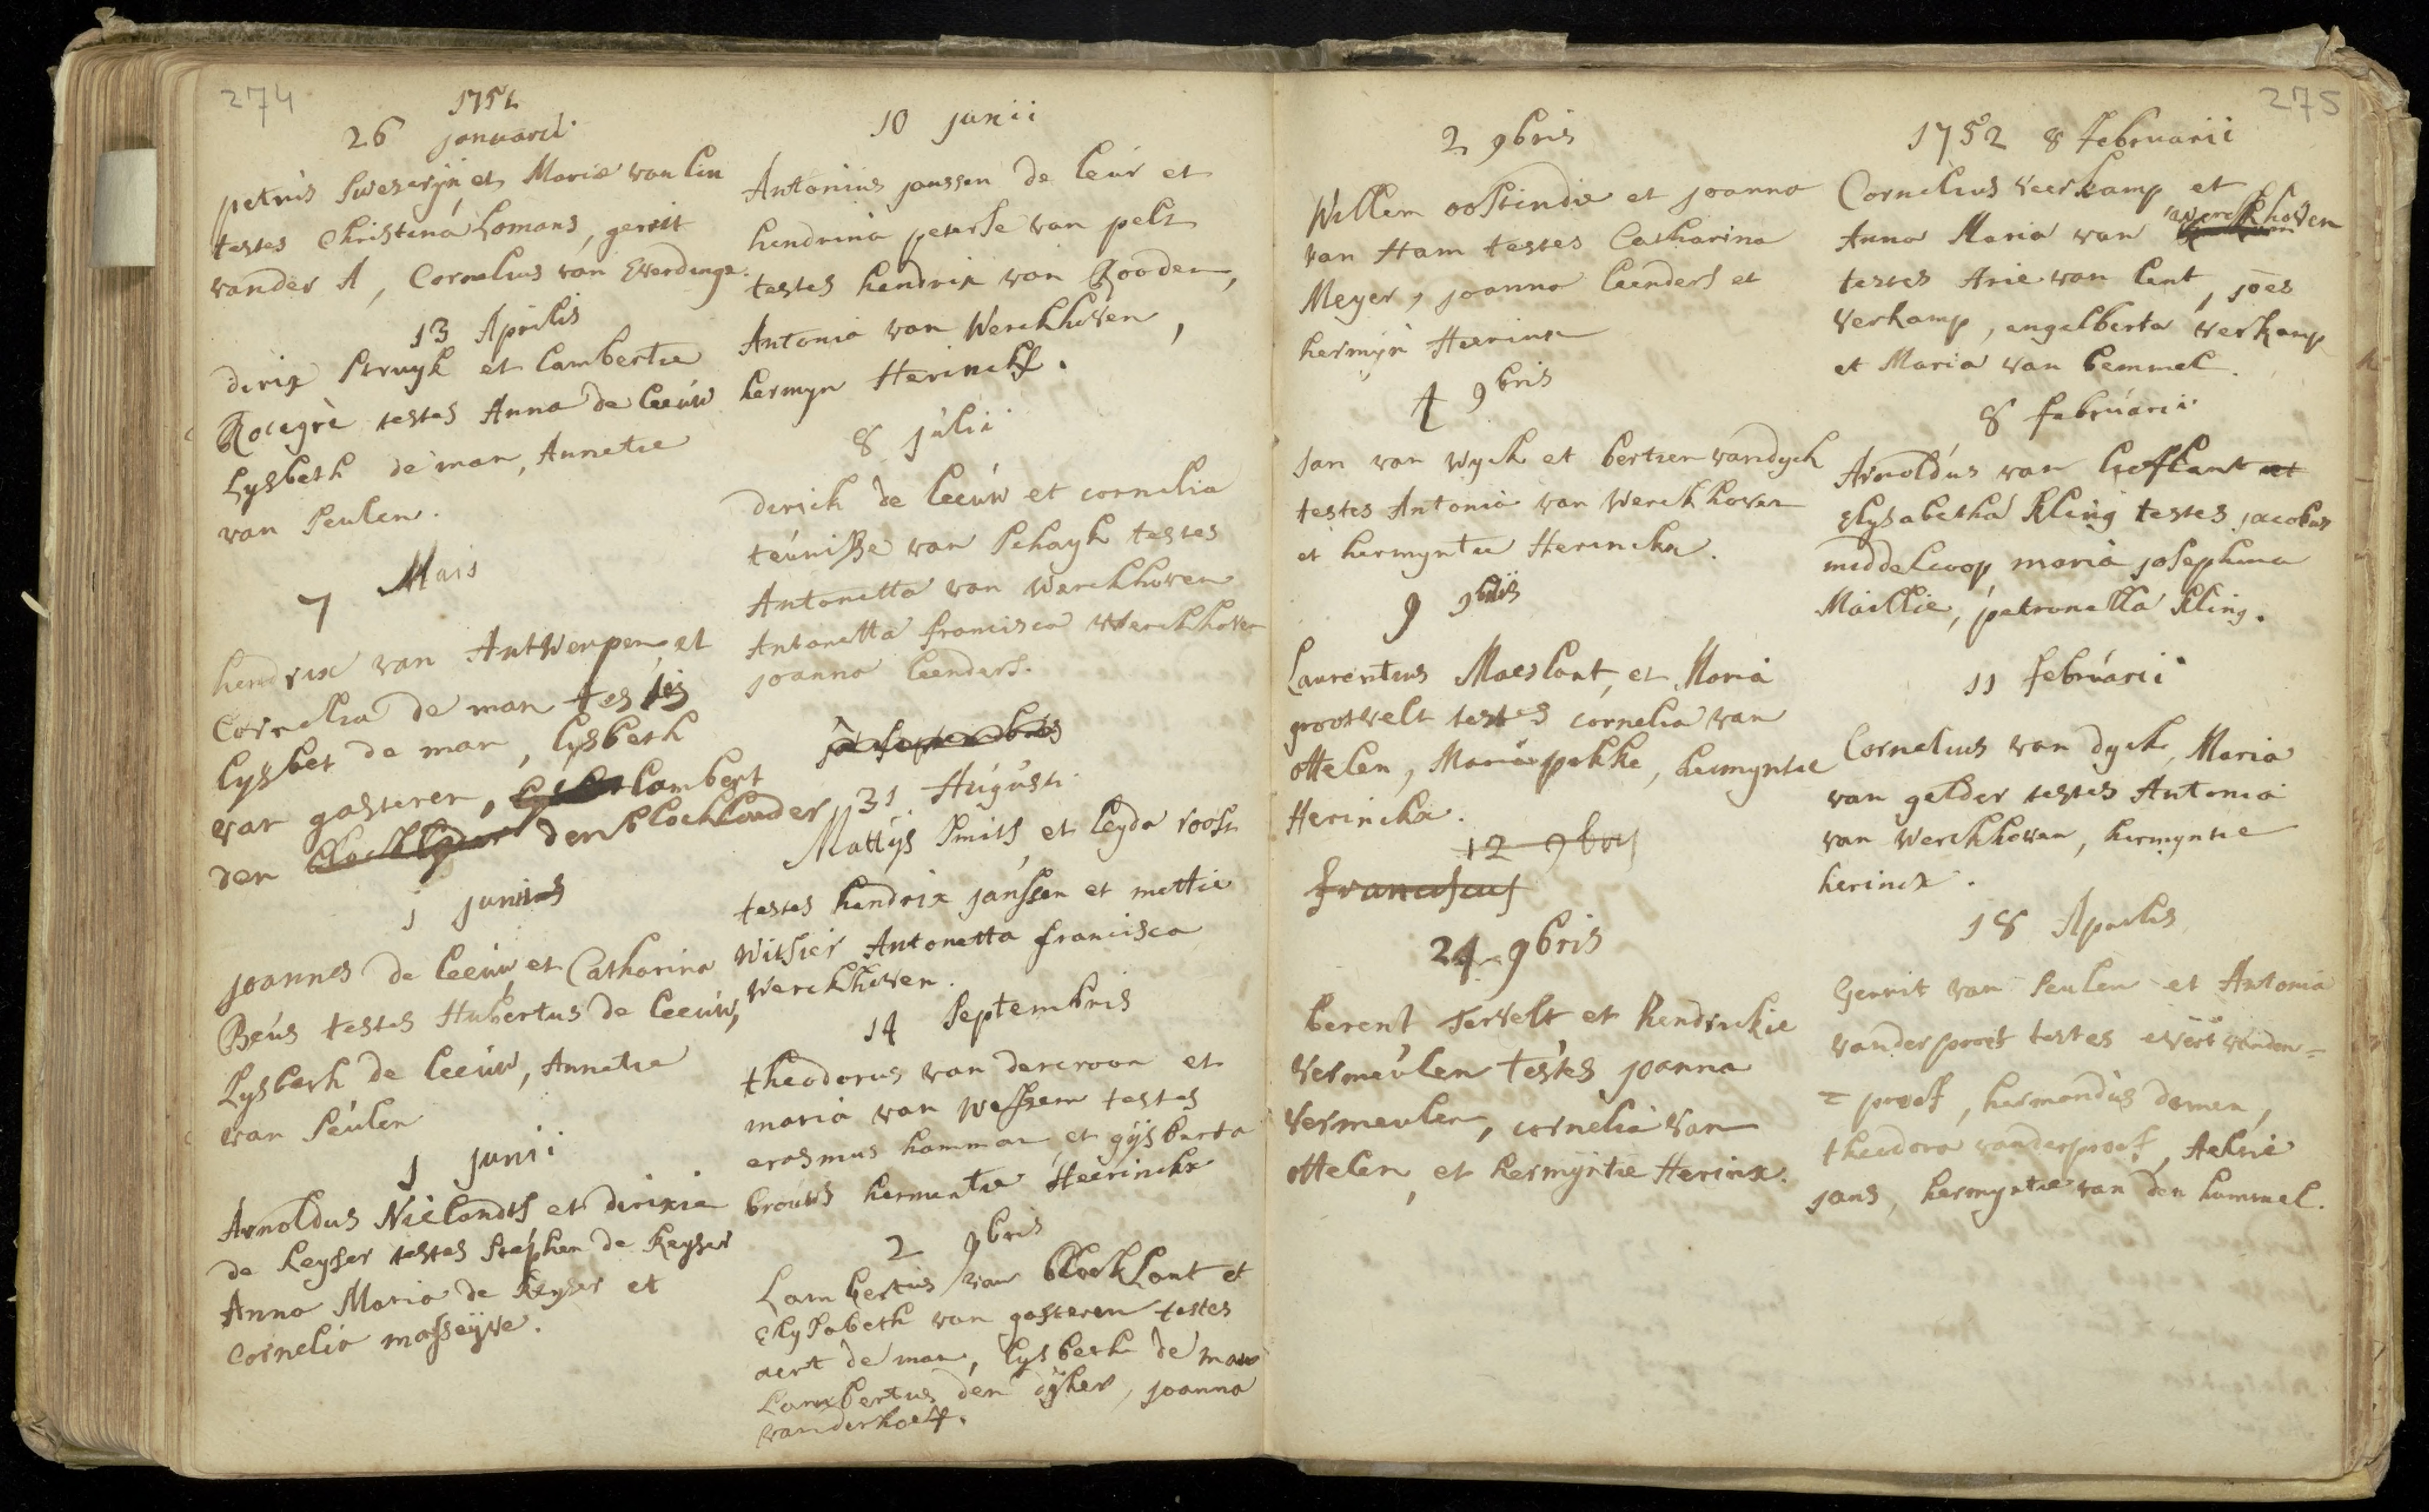 274
1751
26 januarii
petrus Sweserijn et Maria van lin
testes Christina Lomans, gerrit
vander A, Cornelius van Everdinge.
13 Aprilis
dirix Struyk et Lambertie
Rosegrè testes Anna de Leeúw
Lysbeth de man, Annetie
van Seulen.
7 Mais
hendrix van Antwerpen et
Cornelia de man testes
Lysbet de man, Lysbeth
van gasteren, Lambert
den den blocklander
1 junii
joannes de Leeúw et Catharina
Beús testes Hubertus de Leeúw,
Lysbeth de Leeúw, Annetie
van Seúlen
1 junii
Arnoldus Nielandts et dirixie
de keyser testes Stephen de keyser
Anna Maria de keyser et
Cornelia masseijve.
10 junii
Antonius janssen de leur et
hendrina peterse van pelt
testes hendrix van Rooden,
Antonia van Werckhoven,
hermyn Herinckx.
8 júlii
dirick de Leeúw et cornelia
teúnisse van Schayk testes
Antonetta van Werckhoven
Antonetta francisca Werckhoven
joanna Leenders.
septembris
31 Aúgústi
Mattijs Smits et Leyda roost
testes hendrix janssen et mettie
witsier Antonetta francisca
Werckhoven.
14 Septembris
theodorus van dercroon et
maria van wessem testes
erasmus hamman et gijsberta
brouws hermentie Heerinckx
2 9bris
Lambertus van blockLant et
Elysabeth van gasteren testes
aert de man, Lysbeth de man
Lambertus den dijker, joanna
vanderhoef.
275
2 9bris
Willem oostindie et joanna
van Ham testes Catharina
Meyer, joanna Leenders et
hermyn Heerinx
4 9bris
Jan van Wyck et bertien vandyck
testes Antonia van Werckhoven
et hermyntie Herinckx.
9 9bris
Laurentius Maeslant, et Maria
grootvelt testes cornelia van
ottelen, Maria pekke, hermyntie
Herinckx.
12 9bris
franciscus
24 9bris
berent Tervelt et Hendrickie
Vermeúlen testes joanna
Vermeulen, cornelia van
ottelen, et hermyntie Herinx.
1752 8 februarii
Cornelius veerkamp et
Anna Maria van werckhoven
testes Arie van Lent, joēs
Verkamp, engelberta verkamp
et Maria van bemmel.
8 februárii
Arnoldús van Lieflant et
Elysabetha Kling testes jacobus
middelcoop, maria josephina
Maillie, petronella Kling.
11 februárii
Cornelius van dyck, Maria
van gelder testes Antonia
van Werckhoven, hermyntie
herincx.
18 Aprilis
Gerrit van Seulen et Antonia
vanderproef testes evert vander=
=proef, hermandus domen,
theodora vanderproef, Aeltie
jans, hermyntie van den hummel.